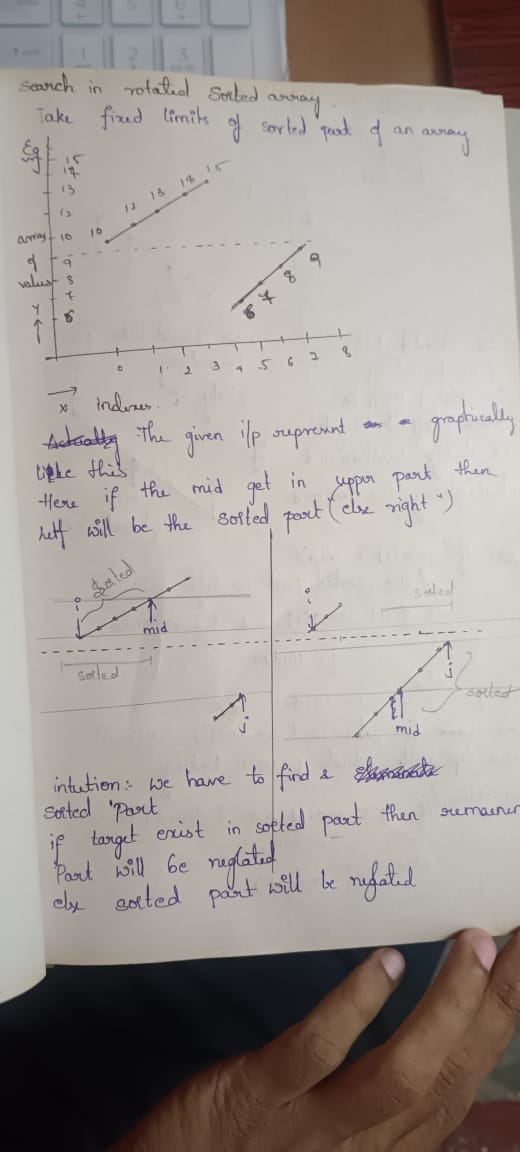 Search in rotated Sorted array.
Take fixed limits of sorted part of an array
Eg
15
14
13
12
array 10
of 9
values 8
7
Y 6
10 12 13 14 15
6 7 8 9
0 1 2 3 4 5 6 7 8
x indexes.
Actually The given i/p represent as a graphically
like this
Here if the mid get in upper part then
left will be the sorted part (else right")
i sorted mid
sorted
j
i sorted
j
sorted
mid
intution:- we have to find a
sorted Part
if target exist in sorted part then remainin
Part will be neglated
else sorted part will be neglated